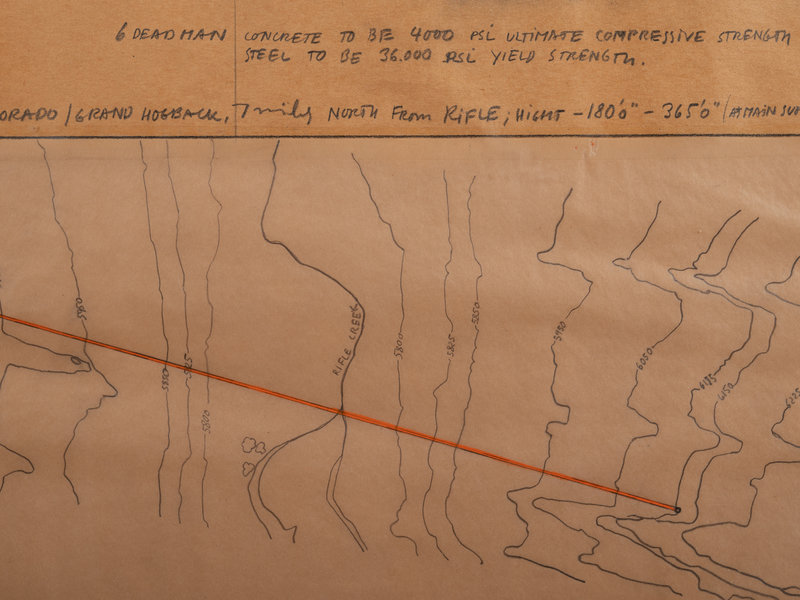 6 DEADMAN
CONCRETE TO BE 4000 PSI ULTIMATE COMPRESSIVE STRENGTH
STEEL TO BE 36.000 PSI YIELD STRENGTH.
ORADO / GRAND HOGBACK, 7 mily NORTH FROM RIFLE; HIGHT - 180'0" - 365'0" (AT MAIN SUP
RIFLE CREEK
5800
5825
5850
5950
6050
6125
6150
6225
5825
5800